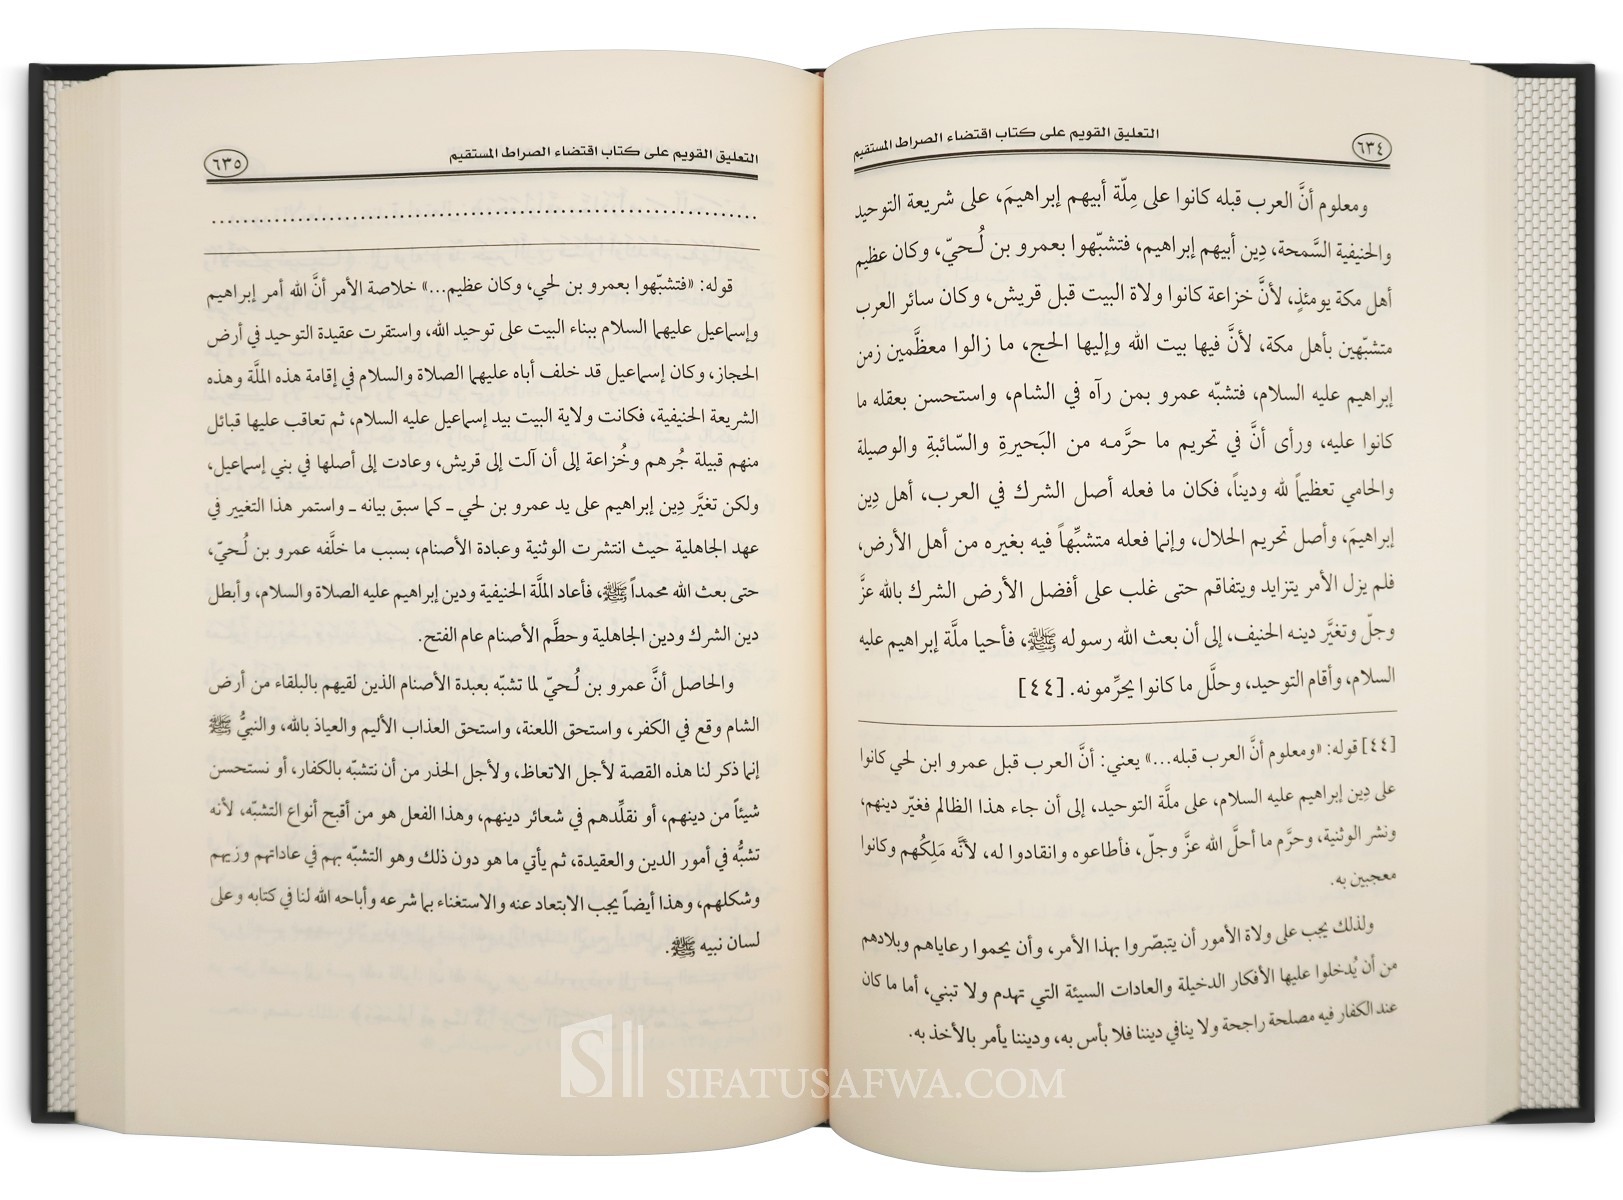 ٦٣٤
التعليق القويم على كتاب اقتضاء الصراط المستقيم
ومعلوم أنَّ العرب قبله كانوا على مِلّة أبيهم إبراهيمَ، على شريعة التوحيد
والحنيفية السَّمحة، دِين أبيهم إبراهيم، فتشبّهوا بعمرو بن لُـحيّ، وكان عظيم
أهل مكة يومئذٍ، لأنَّ خزاعة كانوا ولاة البيت قبل قريش، وكان سائر العرب
متشبّهين بأهل مكة، لأنَّ فيها بيت الله وإليها الحج، ما زالوا معظَّمين زمن
إبراهيم عليه السلام، فتشبّه عمرو بمن رآه في الشام، واستحسن بعقله ما
كانوا عليه، ورأى أنَّ في تحريم ما حرَّمـه من البَحيرةِ والسَّائبةِ والوصيلة
والحامي تعظيماً لله وديناً، فكان ما فعله أصل الشرك في العرب، أهل دِين
إبراهيمَ، وأصل تحريم الحلال، وإنما فعله متشبِّهاً فيه بغيره من أهل الأرض،
فلم يزل الأمر يتزايد ويتفاقم حتى غلب على أفضل الأرض الشرك بالله عزَّ
وجلّ وتغيَّر دينـه الحنيف، إلى أن بعث الله رسوله ﷺ، فأحيا ملَّة إبراهيم عليه
السلام، وأقام التوحيد، وحلَّل ما كانوا يحرِّمونه. [٤٤]
[٤٤] قوله: «ومعلوم أنَّ العرب قبله...» يعني: أنَّ العرب قبل عمرو ابن لحي كانوا
على دِين إبراهيم عليه السلام، على ملَّة التوحيد، إلى أن جاء هذا الظالم فغيّر دينهم،
ونشر الوثنية، وحرَّم ما أحلَّ الله عزَّ وجلّ، فأطاعوه وانقادوا له، لأنَّه مَلِكُهم وكانوا
معجبين به.
ولذلك يجب على ولاة الأمور أن يتبصّروا بهذا الأمر، وأن يحموا رعاياهم وبلادهم
من أن يُدخلوا عليها الأفكار الدخيلة والعادات السيئة التي تهدم ولا تبني، أما ما كان
عند الكفار فيه مصلحة راجحة ولا ينافي ديننا فلا بأس به، وديننا يأمر بالأخذ به.
التعليق القويم على كتاب اقتضاء الصراط المستقيم
٦٣٥
قوله: «فتشبّهوا بعمرو بن لحي، وكان عظيم...» خلاصة الأمر أنَّ الله أمر إبراهيم
وإسماعيل عليهما السلام ببناء البيت على توحيد الله، واستقرت عقيدة التوحيد في أرض
الحجاز، وكان إسماعيل قد خلف أباه عليهما الصلاة والسلام في إقامة هذه الملَّة وهذه
الشريعة الحنيفية، فكانت ولاية البيت بيد إسماعيل عليه السلام، ثم تعاقب عليها قبائل
منهم قبيلة جُرهم وخُزاعة إلى أن آلت إلى قريش، وعادت إلى أصلها في بني إسماعيل،
ولكن تغيَّر دِين إبراهيم على يد عمرو بن لحي ـ كما سبق بيانه ـ واستمر هذا التغيير في
عهد الجاهلية حيث انتشرت الوثنية وعبادة الأصنام، بسبب ما خلَّفه عمرو بن لُـحيّ،
حتى بعث الله محمداً ﷺ، فأعاد الملَّة الحنيفية ودين إبراهيم عليه الصلاة والسلام، وأبطل
دين الشرك ودين الجاهلية وحطَّم الأصنام عام الفتح.
والحاصل أنَّ عمرو بن لُـحيّ لما تشبّه بعبدة الأصنام الذين لقيهم بالبلقاء من أرض
الشام وقع في الكفر، واستحق اللعنة، واستحق العذاب الأليم والعياذ بالله، والنبيُّ ﷺ
إنما ذكر لنا هذه القصة لأجل الاتعاظ، ولأجل الحذر من أن نتشبّه بالكفار، أو نستحسن
شيئاً من دينهم، أو نقلِّدهم في شعائر دينهم، وهذا الفعل هو من أقبح أنواع التشبّه، لأنه
تشبُّه في أمور الدين والعقيدة، ثم يأتي ما هو دون ذلك وهو التشبّه بهم في عاداتهم وزيهم
وشكلهم، وهذا أيضاً يجب الابتعاد عنه والاستغناء بما شرعه وأباحه الله لنا في كتابه وعلى
لسان نبيه ﷺ.
SIFATUSAFWA.COM